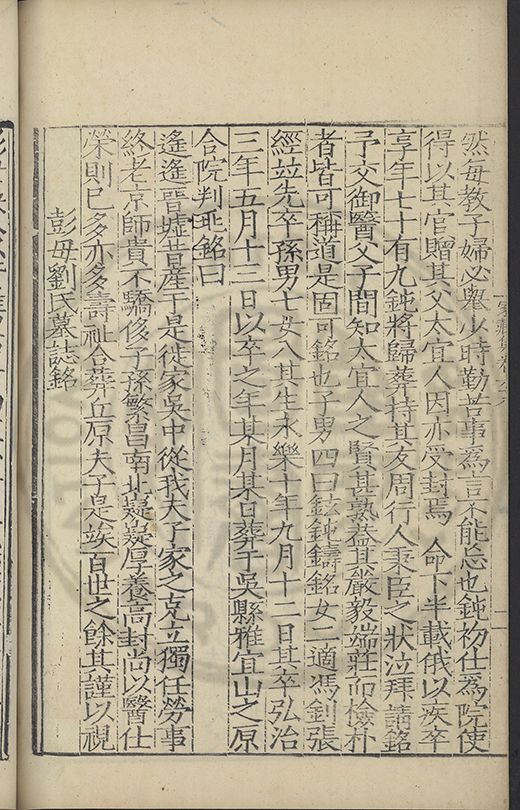 然每教子婦必舉少時勤苦事為言不能忘也鈍初仕為院使
得以其官贈其父太宜人因亦受封焉　命下半載俄以疾卒
享年七十有九鈍將歸葬持其友周行人秉臣之狀泣拜請銘
予交御醫父子間知太宜人之賢甚熟蓋其嚴毅端莊而儉朴
者皆可稱道是固可銘也子男四曰鉉鈍鑄銘女二適馮釗張
經竝先卒孫男七女八其生永樂十年九月十二日其卒弘治
三年五月十三日以卒之年某月某日葬于吳縣雅宜山之原
合院判兆銘曰
遙遙晉墟昔產于是徙家吳中從我夫子家之克立獨任勞事
終老京師貴不驕侈子孫繁昌南北嶷嶷厚養高封尚以醫仕
榮則已多亦多壽祉合葬丘原夫子是竢百世之餘其謹以視
彭母劉氏墓誌銘